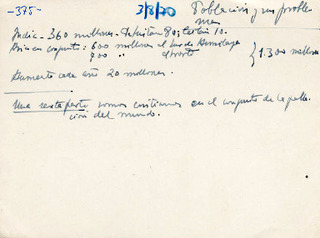 -375-
3/8/70
Población y sus proble
mas
India - 360 millones. Faltan 80; tenían 10.
Asia en conjunto: 600 millones al sur de Himalaya
700 " al norte } 1.300 millones
Aumento cada año 20 millones.
Una sexta parte somos cristianos en el conjunto de la pobla-
ción del mundo.